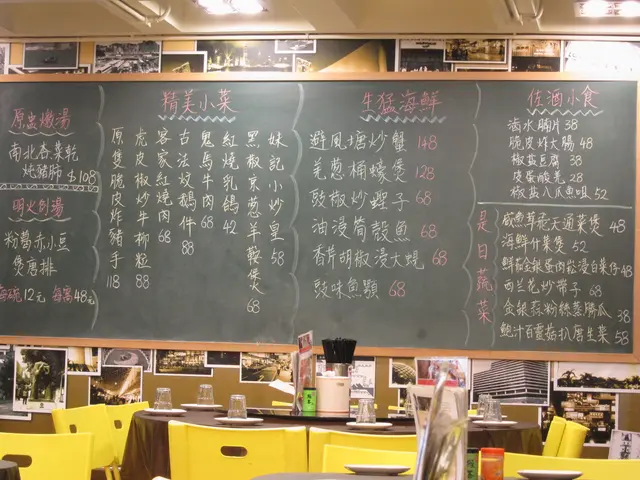 原盅燉湯
南北杏菜乾
炖豬肺 $108
明火例湯
粉葛赤小豆
煲唐排
每碗12元 每窩48元
精美小菜
原煲脆皮炸豬手 118
虎皮椒炒牛柳粒 88
客家紅燒肉 68
古法炆鵝件 88
鬼馬牛肉 68
紅燒乳鴿 42
黑椒京蔥羊鞍煲 68
妹記小炒皇 58
生猛海鮮
避風塘炒蟹 148
羌葱桶蠔煲 128
豉椒炒蟶子 68
油浸筍殼魚 68
香芹胡椒浸大蜆 68
豉味魚頭 68
佐酒小食
滷水腩片 38
脆皮炸大腸 48
椒盐豆腐 38
皮蛋酸羌 28
椒盐八爪魚咀 52
是日蔬菜
咸魚鮮魷通菜煲 48
海鮮什菜煲 52
鮮菇金銀蛋肉崧浸白菜仔 48
西兰花炒带子 68
金銀蒜粉絲蒸勝瓜 38
鮑汁百靈菇扒唐生菜 58